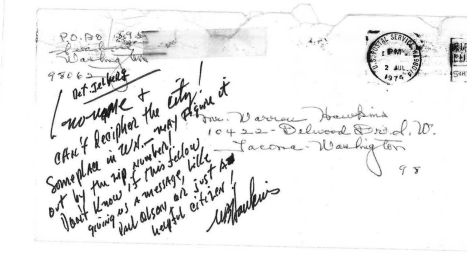 P.O. BO
Washington
98062
Det. Jenkers
no name &
can't decipher the city!
Someplace in WN. — may figure it
out by the zip number!
Don't know if this fellow
giving us a message, like
Paul Olson, or just a
helpful citizen!
WB Hawkins
U.S. POSTAL SERVICE
PM
2 JUL
1974
Warren Hawkins
10422 - Delwood Dr. W.
Tacoma - Washington
98